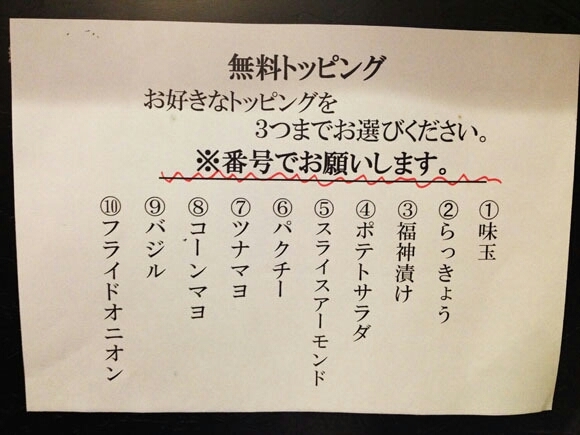 無料トッピング
お好きなトッピングを
3つまでお選びください。
※番号でお願いします。
①味玉
②らっきょう
③福神漬け
④ポテトサラダ
⑤スライスアーモンド
⑥パクチー
⑦ツナマヨ
⑧コーンマヨ
⑨バジル
⑩フライドオニオン